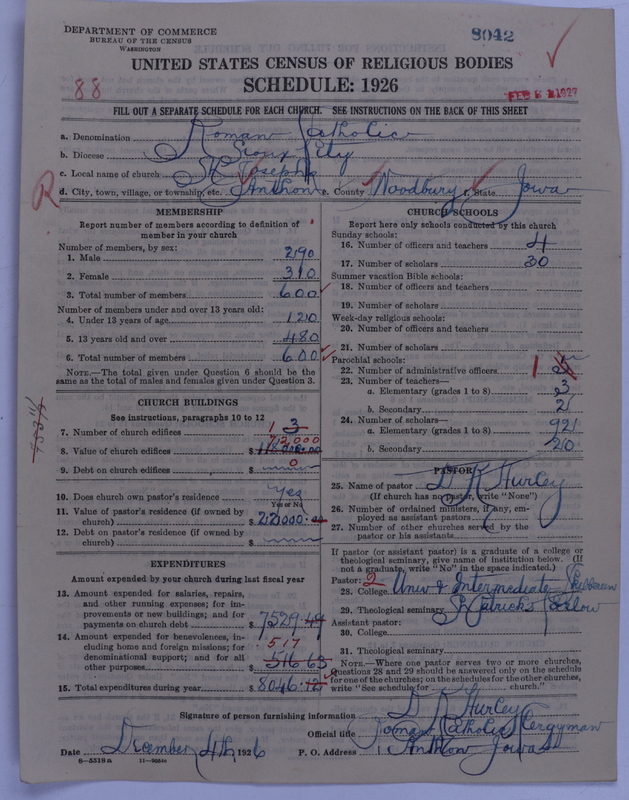 DEPARTMENT OF COMMERCE
BUREAU OF THE CENSUS
WASHINGTON
8042
UNITED STATES CENSUS OF RELIGIOUS BODIES
SCHEDULE: 1926
88
FEB 1927
FILL OUT A SEPARATE SCHEDULE FOR EACH CHURCH. SEE INSTRUCTIONS ON THE BACK OF THIS SHEET
a. Denomination Roman Catholic
b. Diocese Sioux City
c. Local name of church St Josephs
d. City, town, village, or township, etc. Anthon e. County Woodbury f. State Iowa
R
MEMBERSHIP
Report number of members according to definition of member in your church
Number of members, by sex:
1. Male 290
2. Female 310
3. Total number of members 600
Number of members under and over 13 years old:
4. Under 13 years of age 120
5. 13 years old and over 480
6. Total number of members 600
NOTE.—The total given under Question 6 should be the same as the total of males and females given under Question 3.
CHURCH BUILDINGS
See instructions, paragraphs 10 to 12
7. Number of church edifices 1 3
8. Value of church edifices $
9. Debt on church edifices $ 0
10. Does church own pastor's residence Yes
Yes or No
11. Value of pastor's residence (if owned by church) $ 22000.00
12. Debt on pastor's residence (if owned by church) $
EXPENDITURES
Amount expended by your church during last fiscal year
13. Amount expended for salaries, repairs, and other running expenses; for improvements or new buildings; and for payments on church debt $ 7529.49
14. Amount expended for benevolences, including home and foreign missions; for denominational support; and for all other purposes $ 517 516 63
15. Total expenditures during year $ 8046.12
CHURCH SCHOOLS
Report here only schools conducted by this church
Sunday schools:
16. Number of officers and teachers 4
17. Number of scholars 30
Summer vacation Bible schools:
18. Number of officers and teachers
19. Number of scholars
Week-day religious schools:
20. Number of officers and teachers
21. Number of scholars
Parochial schools:
22. Number of administrative officers 1
23. Number of teachers—
a. Elementary (grades 1 to 8) 3
b. Secondary 2
24. Number of scholars—
a. Elementary (grades 1 to 8) 92
b. Secondary 20
PASTOR
25. Name of pastor D K Hurley
(If church has no pastor, write "None")
26. Number of ordained ministers, if any, employed as assistant pastors
27. Number of other churches served by the pastor or his assistants
If pastor (or assistant pastor) is a graduate of a college or theological seminary, give name of institution below. (If not a graduate, write "No" in the space indicated.)
Pastor: 2
28. College Univ & Intermediate
29. Theological seminary St Patricks Carlow
Assistant pastor:
30. College
31. Theological seminary
NOTE.—Where one pastor serves two or more churches, Questions 28 and 29 should be answered only on the schedule for one of the churches; on the schedules for the other churches, write "See schedule for church."
Signature of person furnishing information D K Hurley
Official title Roman Catholic Clergyman
Date December 4th, 1926 P. O. Address Anthon Iowa
8—5518a 11—9084c